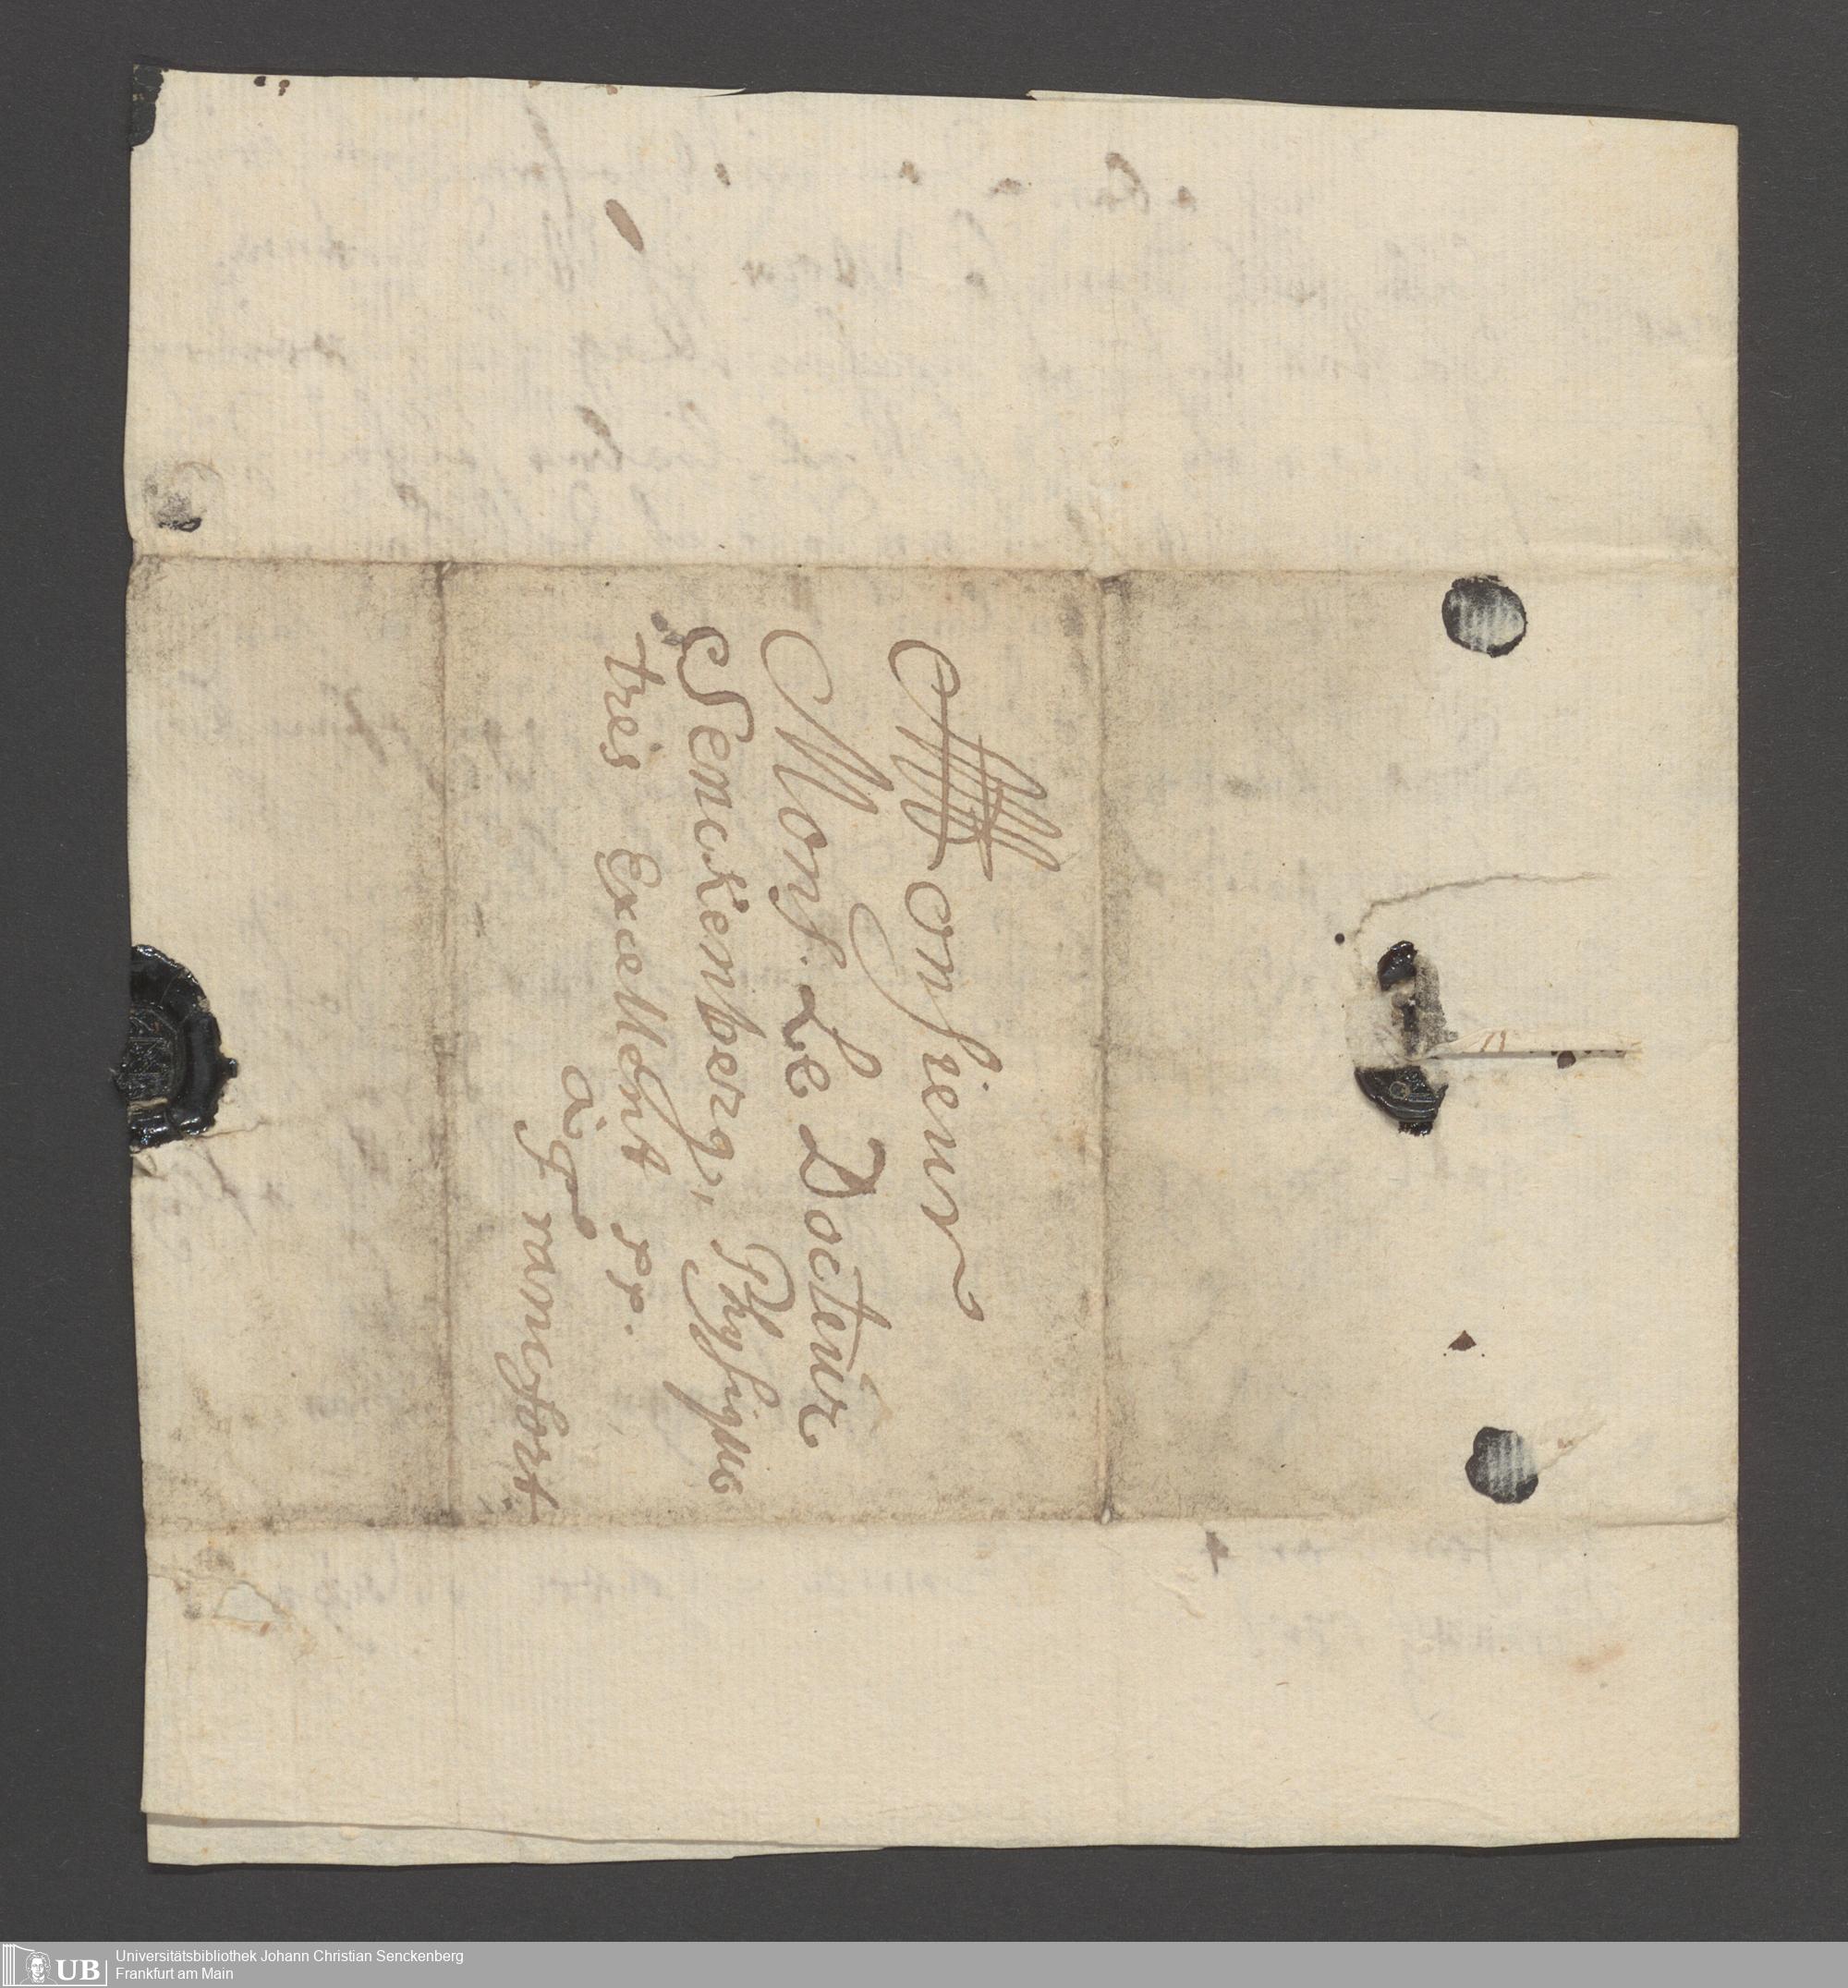 Monsieur
Mons. Le Docteur
Senckenberg, Physique
tres Exellent pp.
à Francfort.
UB
Universitätsbibliothek Johann Christian Senckenberg
Frankfurt am Main